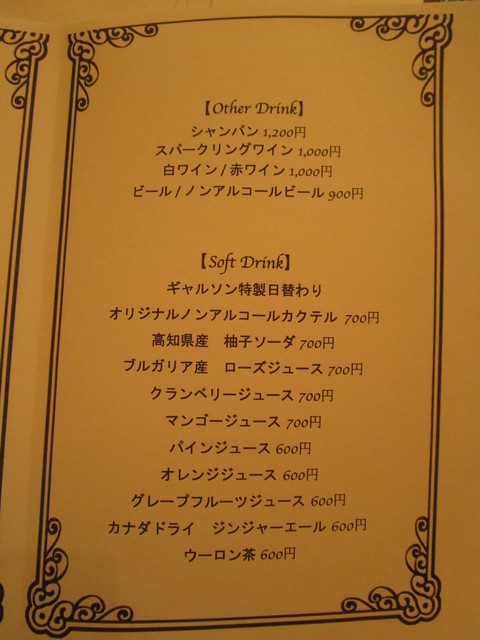 【Other Drink】
シャンパン 1,200円
スパークリングワイン 1,000円
白ワイン / 赤ワイン 1,000円
ビール / ノンアルコールビール 900円
【Soft Drink】
ギャルソン特製日替わり
オリジナルノンアルコールカクテル 700円
高知県産　柚子ソーダ 700円
ブルガリア産　ローズジュース 700円
クランベリージュース 700円
マンゴージュース 700円
パインジュース 600円
オレンジジュース 600円
グレープフルーツジュース 600円
カナダドライ　ジンジャーエール 600円
ウーロン茶 600円